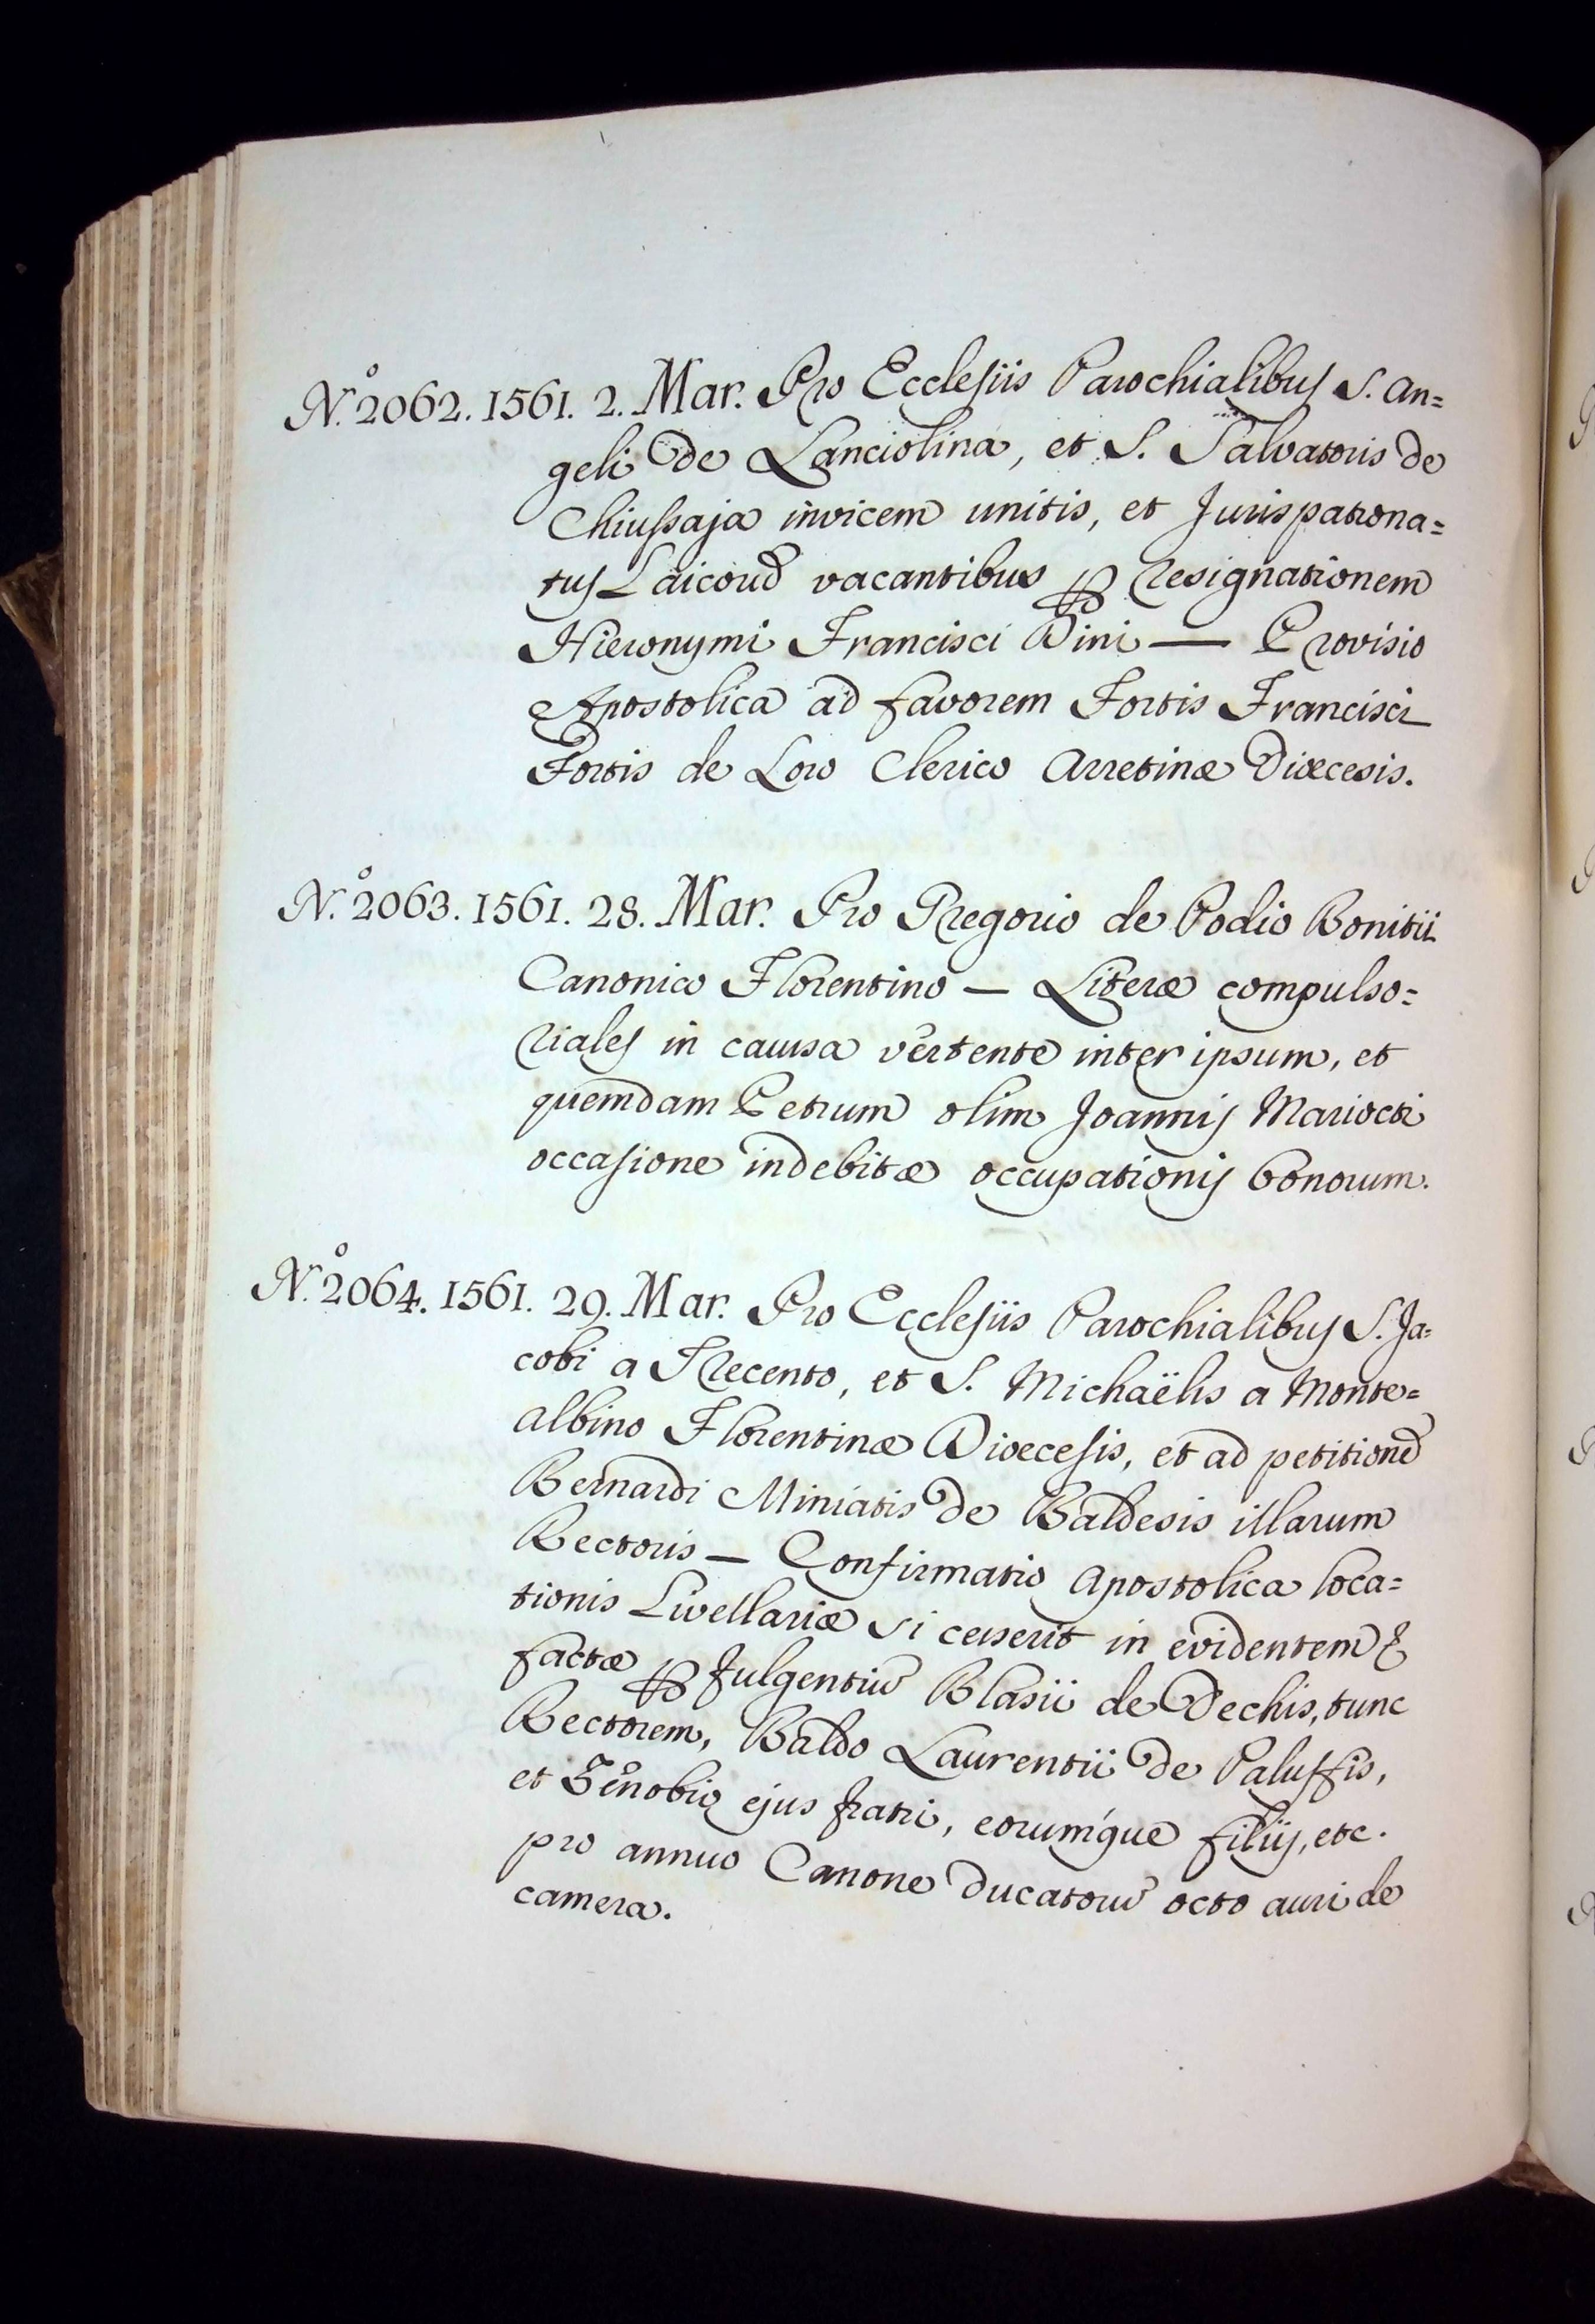 N.º 2062. 1561. 2. Mar. Pro Ecclesiis Parochialibus S. An=
geli de Lanciolina, et S. Salvatoris de
Chiussaja invicem unitis, et Jurispatrona=
tus Laicorũ vacantibus ꝑ resignationem
Hieronymi Francisci Dini — Provisio
Apostolica ad favorem Fortis Francisci
Fortis de Loro Clerico Arretinæ Diœcesis.
N.º 2063. 1561. 28. Mar. Pro Gregorio de Podio Bonitii
Canonico Florentino — Literæ compulso=
riales in causa vertente inter ipsum, et
quemdam Petrum olim Joannis Mariocti
occasione indebitæ occupationis bonorum.
N.º 2064. 1561. 29. Mar. Pro Ecclesiis Parochialibus S. Ja=
cobi a Trecento, et S. Michaëlis a Monte=
albino Florentinæ Diœcesis, et ad petitionẽ
Bernardi Miniatis de Baldesis illarum
Rectoris — Confirmatio Apostolica loca=
tionis Livellariæ si cesserit in evidentem &
factæ ꝑ Fulgentiũ Blasii de Dechis, tunc
Rectorem, Baldo Laurentii de Paluffis,
et Zenobio ejus fratri, eorumque filiis, etc.
pro annuo Canone ducatorũ octo auri de
camera.